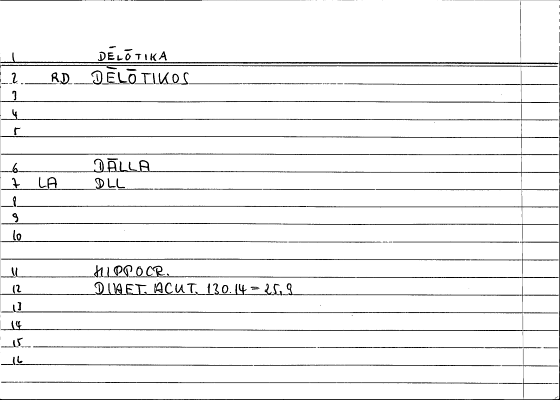 1 DĒLŌTIKA
2 RD DĒLŌTIKOS
3
4
5
6 DĀLLA
7 LA DLL
8
9
10
11 HIPPOCR.
12 DIAET. ACUT. 130.14 = 25,9
13
14
15
16